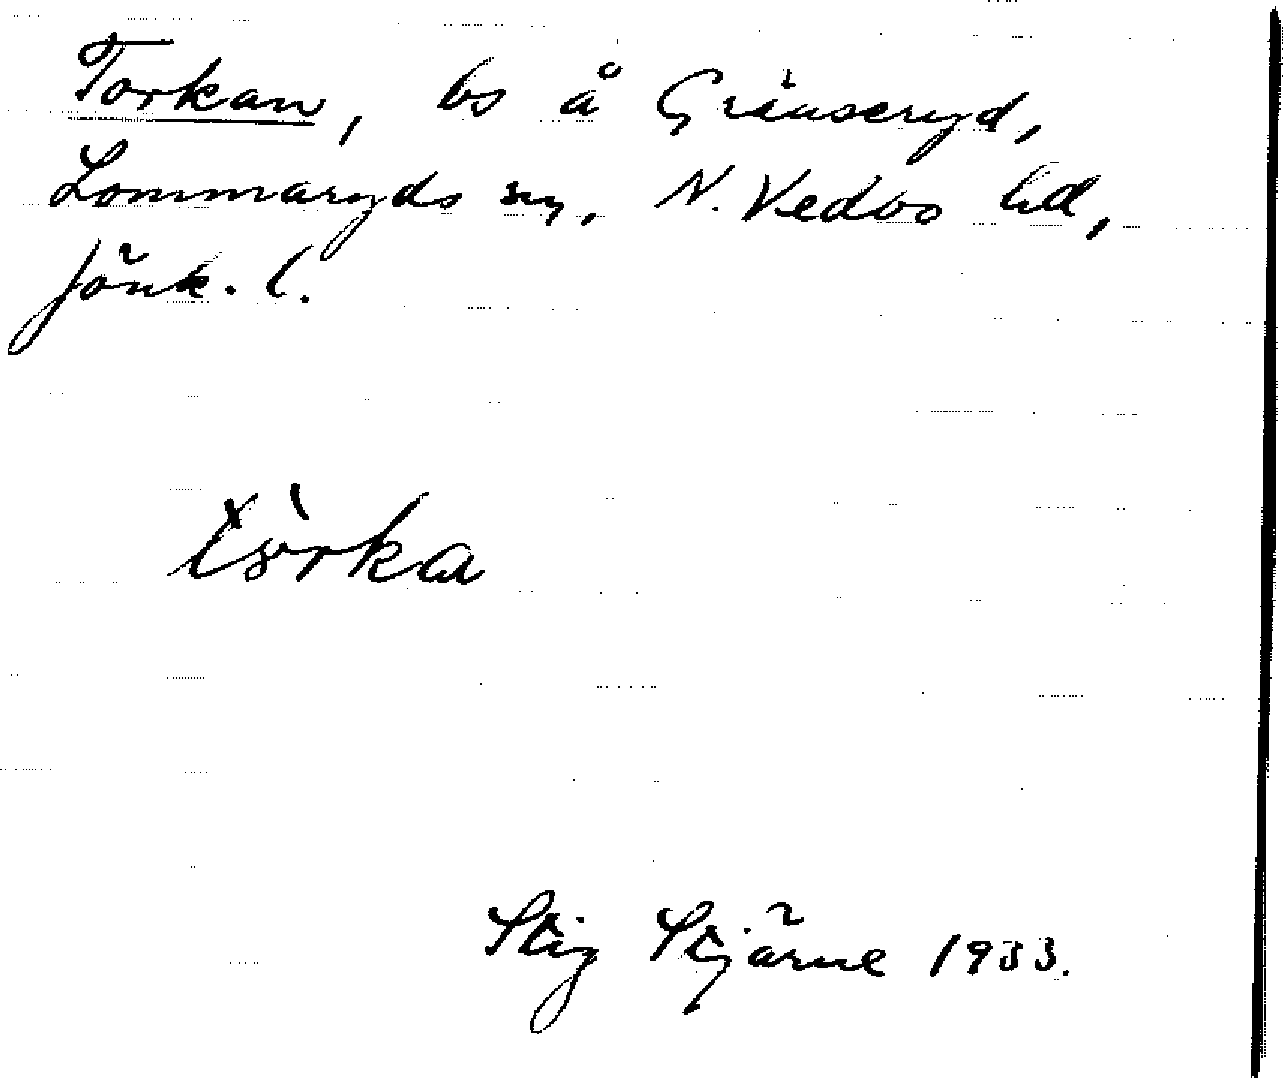 Torkan, bs å Gränseryd,
Lommaryds sn, N. Vedbo hd,
Jönk. l.
Stig Stjärne 1933.